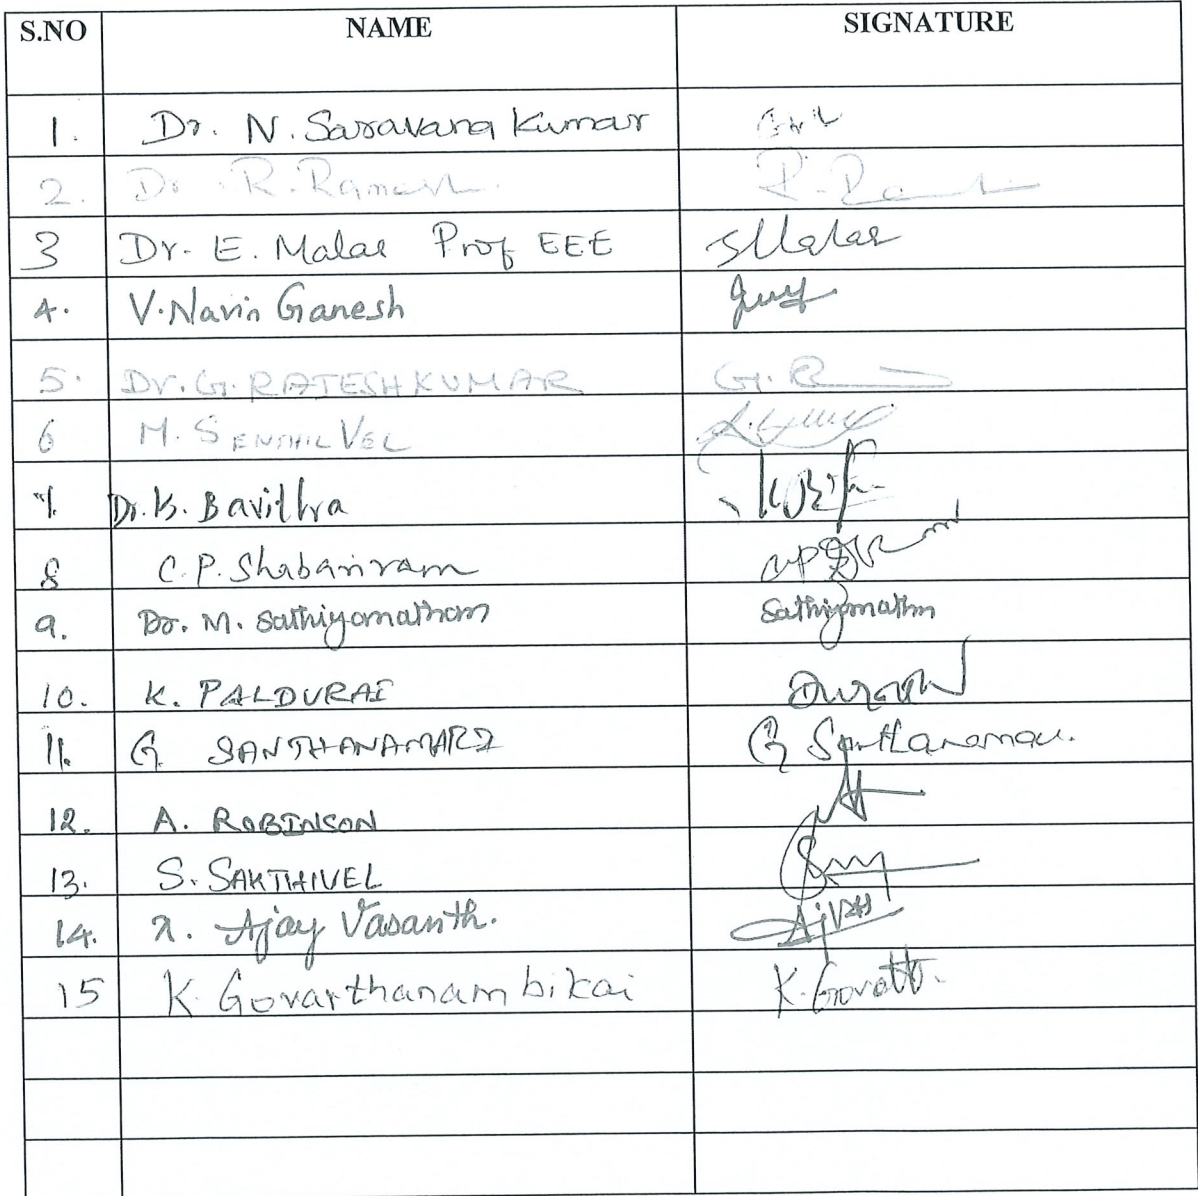 S.NO NAME SIGNATURE
1. Dr. N. Saravana Kumar
2. Dr. R. Ramesh.
3 Dr. E. Malar Prof EEE
4. V. Navin Ganesh
5. Dr. G. RAJESHKUMAR G. R
6 M. SENTHIL VEL
7. Dr. K. Bavithra
8 C. P. Shabariram
9. Dr. M. Sathiyamatham Sathiyamathm
10. K. PALDURAI
11. G SANTHANAMARI G Santhanamari.
12. A. ROBINSON
13. S. SAKTHIVEL
14. Ajay Vasanth.
15 K. Govarthanambikai K. Govatt.